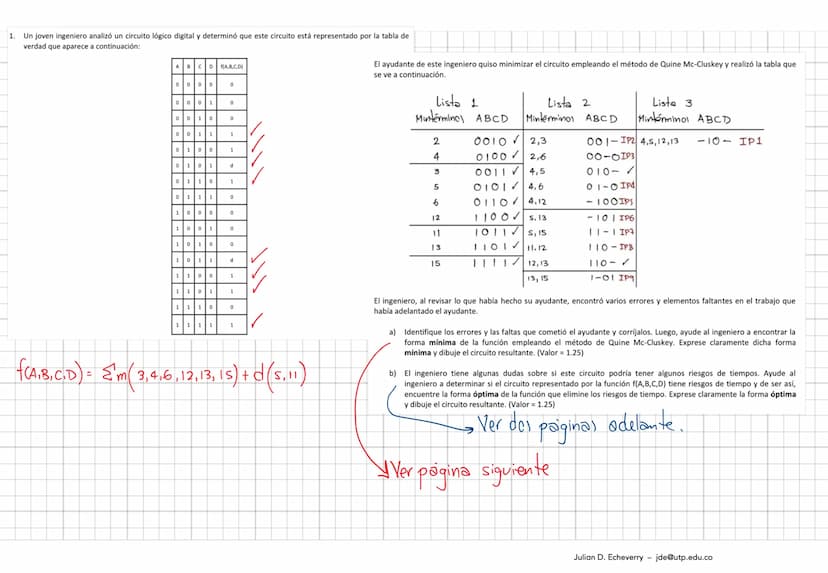 1. Un joven ingeniero analizó un circuito lógico digital y determinó que este circuito está representado por la tabla de
verdad que aparece a continuación:
A B C D f(A,B,C,D)
0 0 0 0 0
0 0 0 1 0
0 0 1 0 0
0 0 1 1 1 ✓
0 1 0 0 1 ✓
0 1 0 1 d ✓
0 1 1 0 1 ✓
0 1 1 1 0
1 0 0 0 0
1 0 0 1 0
1 0 1 0 0
1 0 1 1 d ✓
1 1 0 0 1 ✓
1 1 0 1 1 ✓
1 1 1 0 0
1 1 1 1 1 ✓
f(A,B,C,D) = Σm(3,4,6,12,13,15) + d(5,11)
El ayudante de este ingeniero quiso minimizar el circuito empleando el método de Quine Mc-Cluskey y realizó la tabla que
se ve a continuación.
Lista 1 Lista 2 Lista 3
Mintérminos ABCD Mintérminos ABCD Mintérminos ABCD
2 0010 ✓ 2,3 001- IP2 4,5,12,13 -10- IP1
4 0100 ✓ 2,6 00-0 IP3
3 0011 ✓ 4,5 010- ✓
5 0101 ✓ 4,6 01-0 IP4
6 0110 ✓ 4,12 -100 IP5
12 1100 ✓ 5,13 -101 IP6
11 1011 ✓ 5,15 11-1 IP7
13 1101 ✓ 11,12 110- IP8
15 1111 ✓ 12,13 110- ✓
13,15 1-01 IP9
El ingeniero, al revisar lo que había hecho su ayudante, encontró varios errores y elementos faltantes en el trabajo que
había adelantado el ayudante.
a) Identifique los errores y las faltas que cometió el ayudante y corríjalos. Luego, ayude al ingeniero a encontrar la
forma mínima de la función empleando el método de Quine Mc-Cluskey. Exprese claramente dicha forma
mínima y dibuje el circuito resultante. (Valor = 1.25)
b) El ingeniero tiene algunas dudas sobre si este circuito podría tener algunos riesgos de tiempos. Ayude al
ingeniero a determinar si el circuito representado por la función f(A,B,C,D) tiene riesgos de tiempo y de ser así,
encuentre la forma óptima de la función que elimine los riesgos de tiempo. Exprese claramente la forma óptima
y dibuje el circuito resultante. (Valor = 1.25)
Ver dos páginas adelante.
Ver página siguiente
Julian D. Echeverry – jde@utp.edu.co